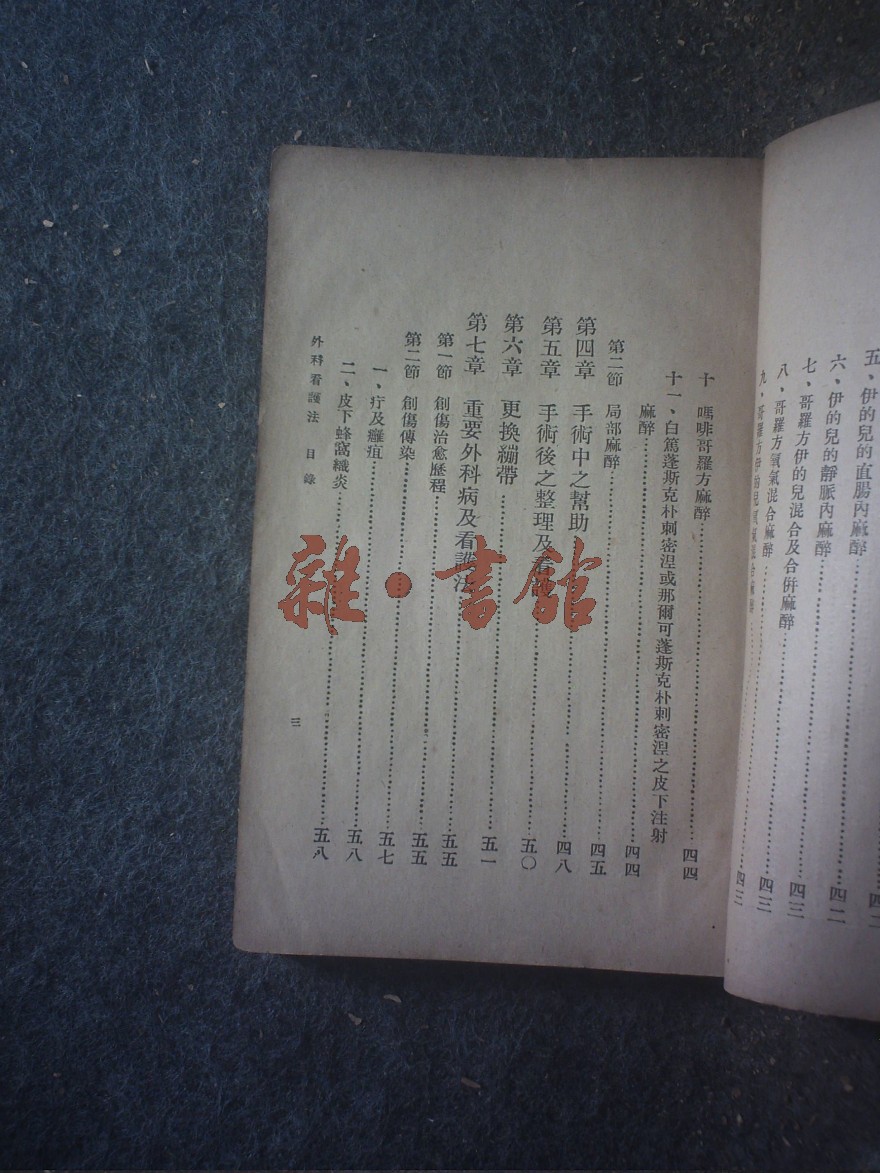 五、伊的兒的直腸內麻醉……四二
六、伊的兒的靜脈內麻醉……四二
七、哥羅方伊的兒混合及合併麻醉……四三
八、哥羅方氧氣混合麻醉……四三
九、哥羅方伊的兒氧氣混合麻醉……四三
十 嗎啡哥羅方麻醉……四四
十一、白篤蓬斯克朴剌密涅或那爾可蓬斯克朴剌密涅之皮下注射
麻醉……四四
第二節 局部麻醉……四五
第四章 手術中之幫助……四八
第五章 手術後之整理及看護……五〇
第六章 更換繃帶……五一
第七章 重要外科病及看護法……五五
第一節 創傷治愈歷程……五五
第二節 創傷傳染……五七
一、疔及癰疽……五八
二、皮下蜂窩織炎……五八
外科看護法 目錄 三
雜·書館